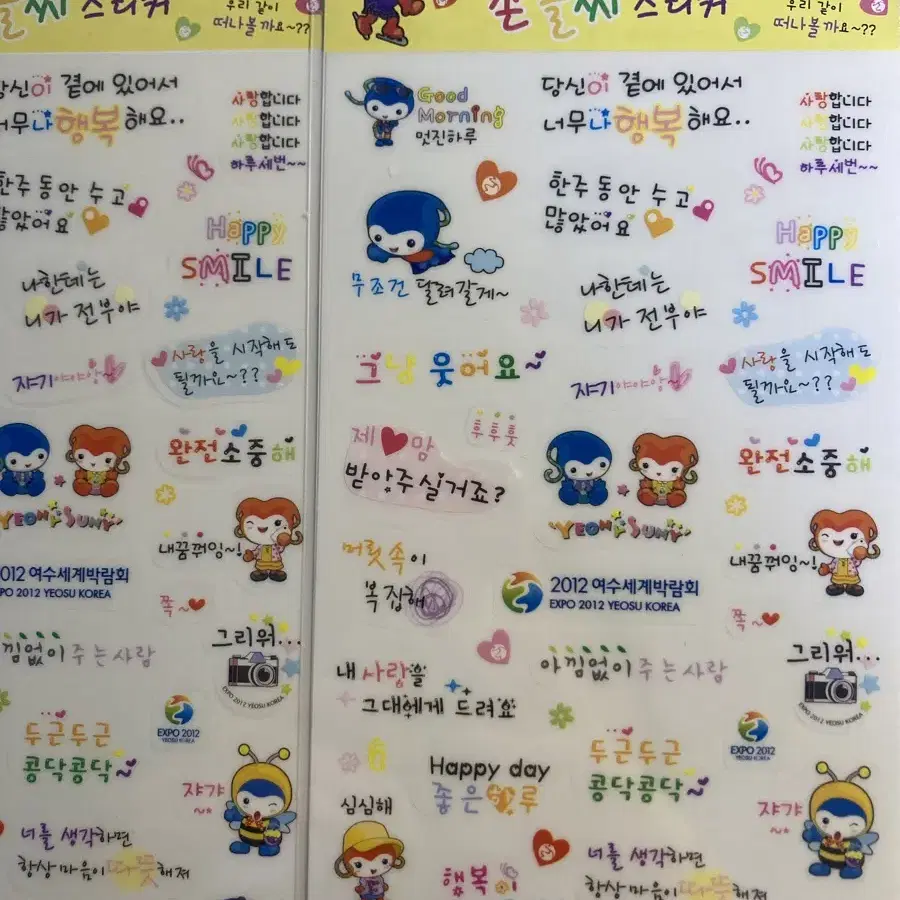 씨 스티커
우리 같이
떠나볼까요~??
당신이 곁에 있어서
너무나 행복해요..
사랑합니다
사랑합니다
사랑합니다
하루세번~~
한주 동안 수고
많았어요
Happy
SMILE
나한테는
니가 전부야
쟈기야야앙~
사랑을 시작해도
될까요~??
완전소중해
YEONY SUNY
내꿈꿔잉~!
2012 여수세계박람회
EXPO 2012 YEOSU KOREA
쪽~
아낌없이 주는사람
그리워...
EXPO 2012 YEOSU KOREA
EXPO 2012
YEOSU KOREA
두근두근
콩닥콩닥~
쟈갸
~
너를 생각하면
항상마음이 따뜻해져
손글씨 스티커
우리 같이
떠나볼까요~??
Good
Morning
멋진하루
당신이 곁에 있어서
너무나 행복해요..
사랑합니다
사랑합니다
사랑합니다
하루세번~~
무조건 달려갈게~
한주 동안 수고
많았어요
Happy
SMILE
나한테는
니가 전부야
그냥 웃어요~
쟈기야야앙~
사랑을 시작해도
될까요~??
제 맘
받아주실거죠?
후후훗
YEONY SUNY
완전소중해
내꿈꿔잉~!
머릿속이
복잡해
2012 여수세계박람회
EXPO 2012 YEOSU KOREA
쪽~
내 사랑을
그대에게 드려요
아낌없이 주는사람
그리워...
EXPO 2012 YEOSU KOREA
EXPO 2012
YEOSU KOREA
Happy day
좋은하루
두근두근
콩닥콩닥~
심심해
쟈갸
~
행복이
너를 생각하면
항상마음이 따뜻해져